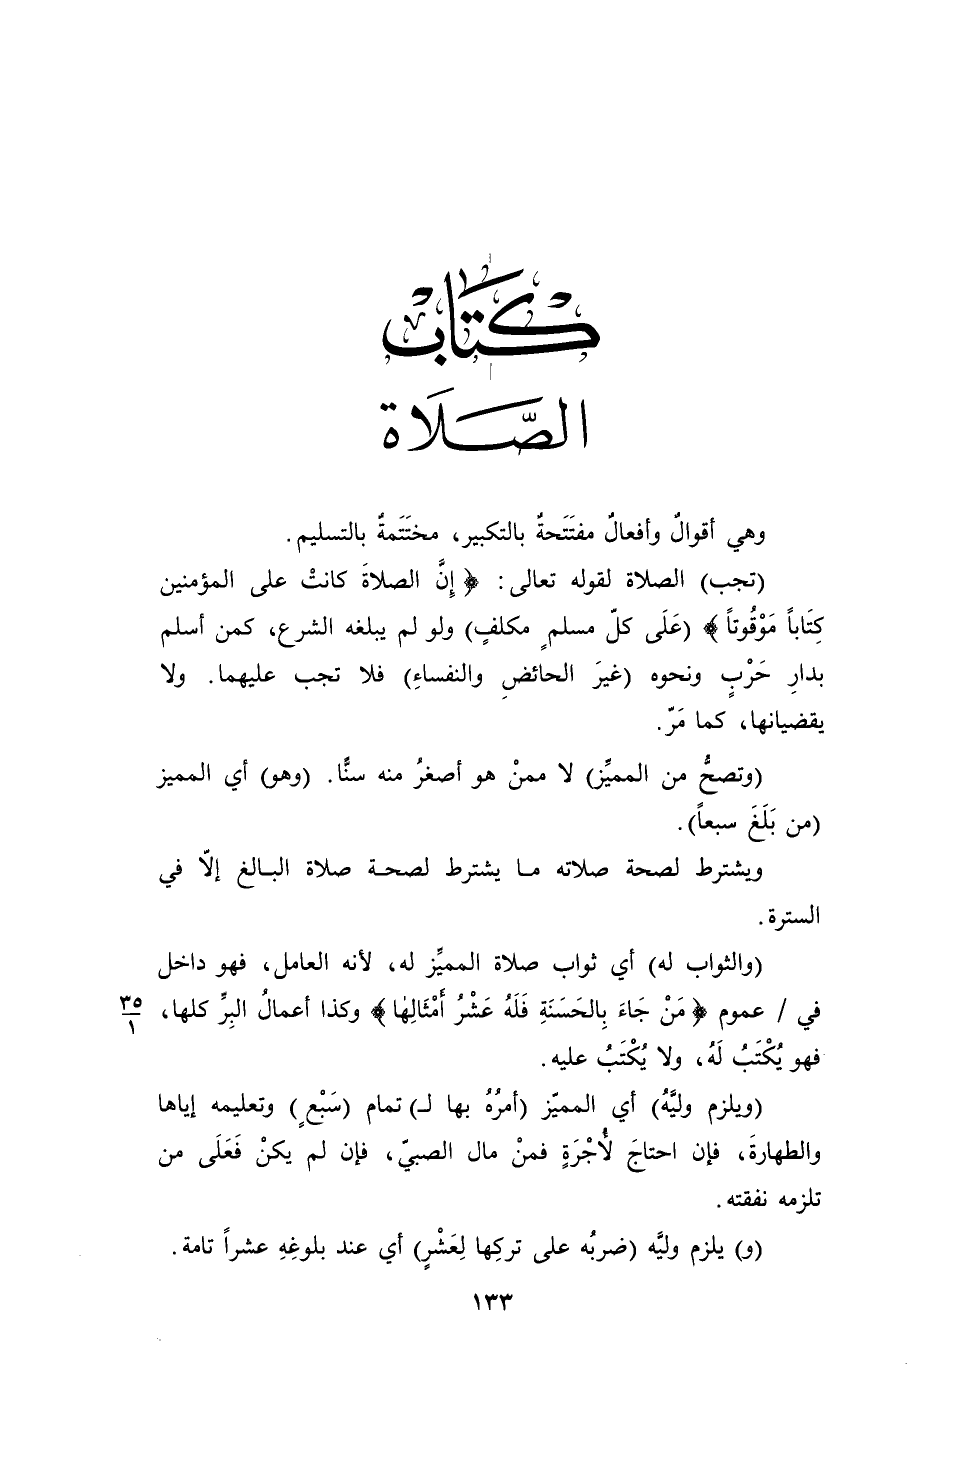 كتاب
الصَّلَاة
وهي أقوالٌ وأفعالٌ مفتَتَحةٌ بالتكبير، مختَتَمةٌ بالتسليم.
(تجب) الصلاة لقوله تعالى: ﴿إِنَّ الصلاةَ كانتْ على المؤمنين
كِتَاباً مَوْقُوتاً﴾ (عَلَى كلّ مسلمٍ مكلفٍ) ولو لم يبلغه الشرع، كمن أسلم
بدارِ حَرْبٍ ونحوه (غيرَ الحائضِ والنفساءِ) فلا تجب عليهما. ولا
يقضيانها، كما مَرّ.
(وتصحُّ من المميِّز) لا ممنْ هو أصغرُ منه سنًّا. (وهو) أي المميز
(من بَلَغَ سبعاً).
ويشترط لصحة صلاته ما يشترط لصحة صلاة البالغ إلّا في
السترة.
(والثواب له) أي ثواب صلاة المميِّز له، لأنه العامل، فهو داخل
في / عموم ﴿مَنْ جَاءَ بِالحَسَنَةِ فَلَهُ عَشْرُ أَمْثَالِهَا﴾ وكذا أعمالُ البِرِّ كلها، ٣٥/١
فهو يُكْتَبُ لَهُ، ولا يُكْتَبُ عليه.
(ويلزم وليَّهُ) أي المميّز (أمرُهُ بها لـ) تمام (سَبْعٍ) وتعليمه إياها
والطهارةَ، فإن احتاجَ لأُجْرَةٍ فمنْ مال الصبيّ، فإن لم يكنْ فَعَلَى من
تلزمه نفقته.
(و) يلزم وليَّه (ضربُه على تركِها لِعَشْرٍ) أي عند بلوغِهِ عشراً تامة.
١٣٣